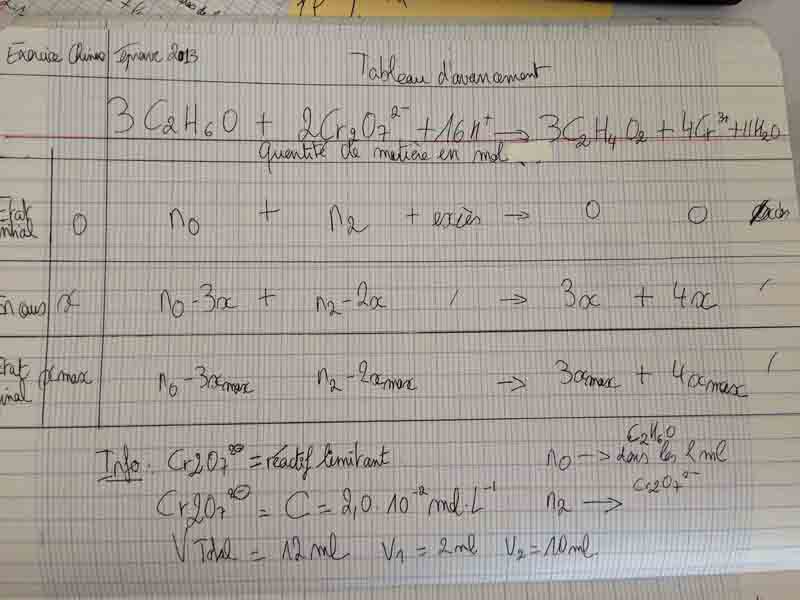 Exercice Chimie Epreuve 2013
Tableau d'avancement
3C2H6O + 2Cr2O7²⁻ + 16H⁺ → 3C2H4O2 + 4Cr³⁺ + 11H2O
Quantité de matière en mol
Etat initial 0 n0 + n2 + excès → 0 0 excès
En cours x n0 - 3x + n2 - 2x / → 3x + 4x /
Etat final xmax n0 - 3xmax n2 - 2xmax → 3xmax + 4xmax /
Info. Cr2O7²⁻ = réactif limitant
n0 → C2H6O dans les 2 ml
Cr2O7²⁻ = C = 2,0 · 10⁻² mol·L⁻¹
n2 → Cr2O7²⁻
V Total = 12 ml V1 = 2ml V2 = 10ml